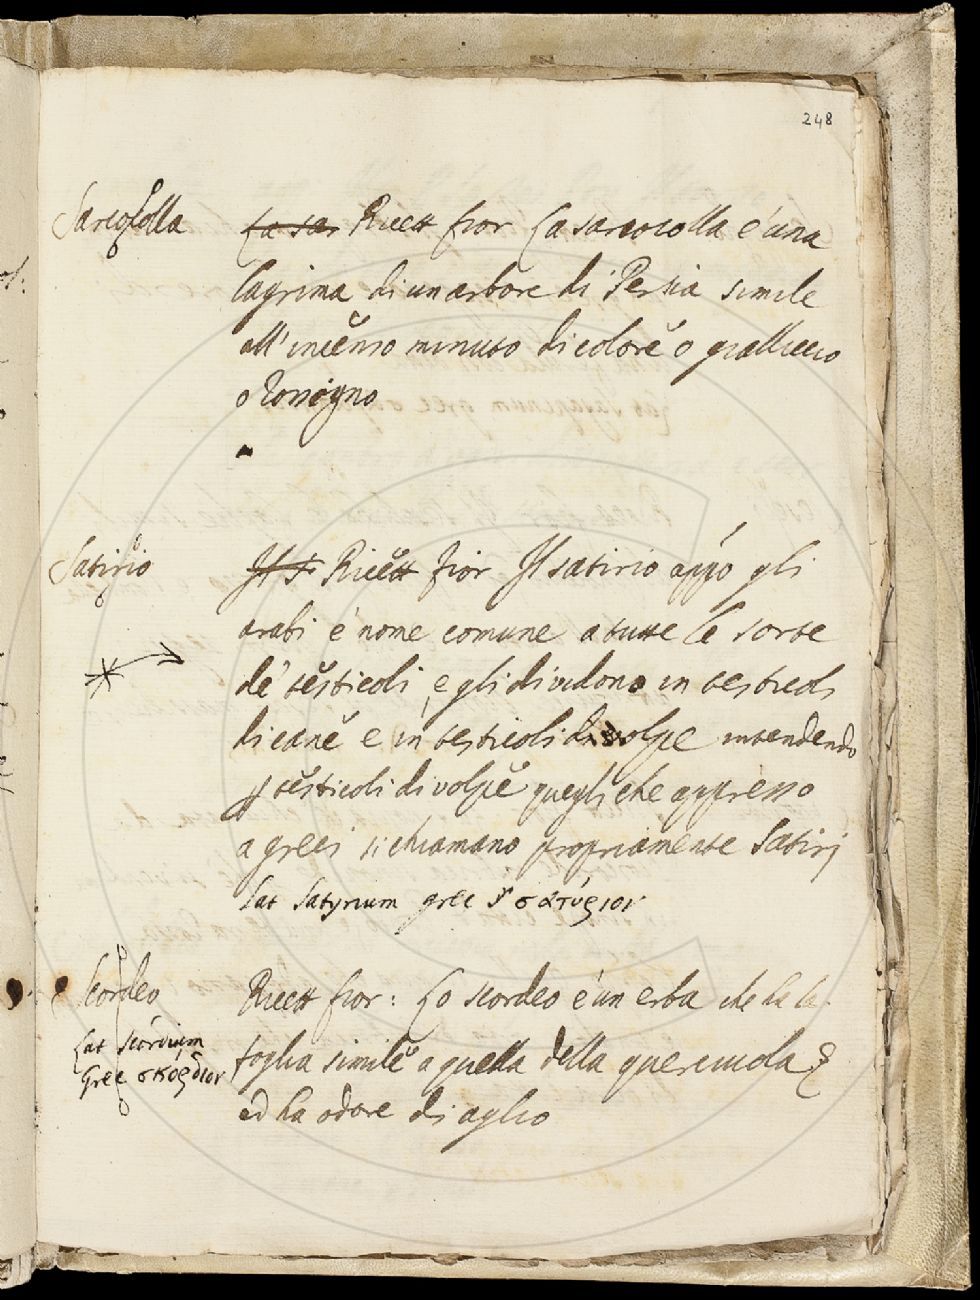 248
Sarcocolla
La sar Ricett fior La sarcocolla é una
lagrima di un arbore di Persia simile
all' incenso minuto di colore o gialliccio
o Rossigno
Satirio
Il S Ricett fior Il satirio appo gli
arabi é nome comune a tutte le sorte
de' testicoli, e gli dividono in testicoli
di cane e in testicoli di volpe intendendo
p testicoli di volpe quegli che appresso
a greci si chiamano propriamente Satirj
Lat Satyrium grec σατύριον
Scordeo
Ricett fior: Lo scordeo é un erba che ha la
Lat scórdium
foglia simile a quella della querciuola
Grec σκορδιον
ed ha odore di aglio